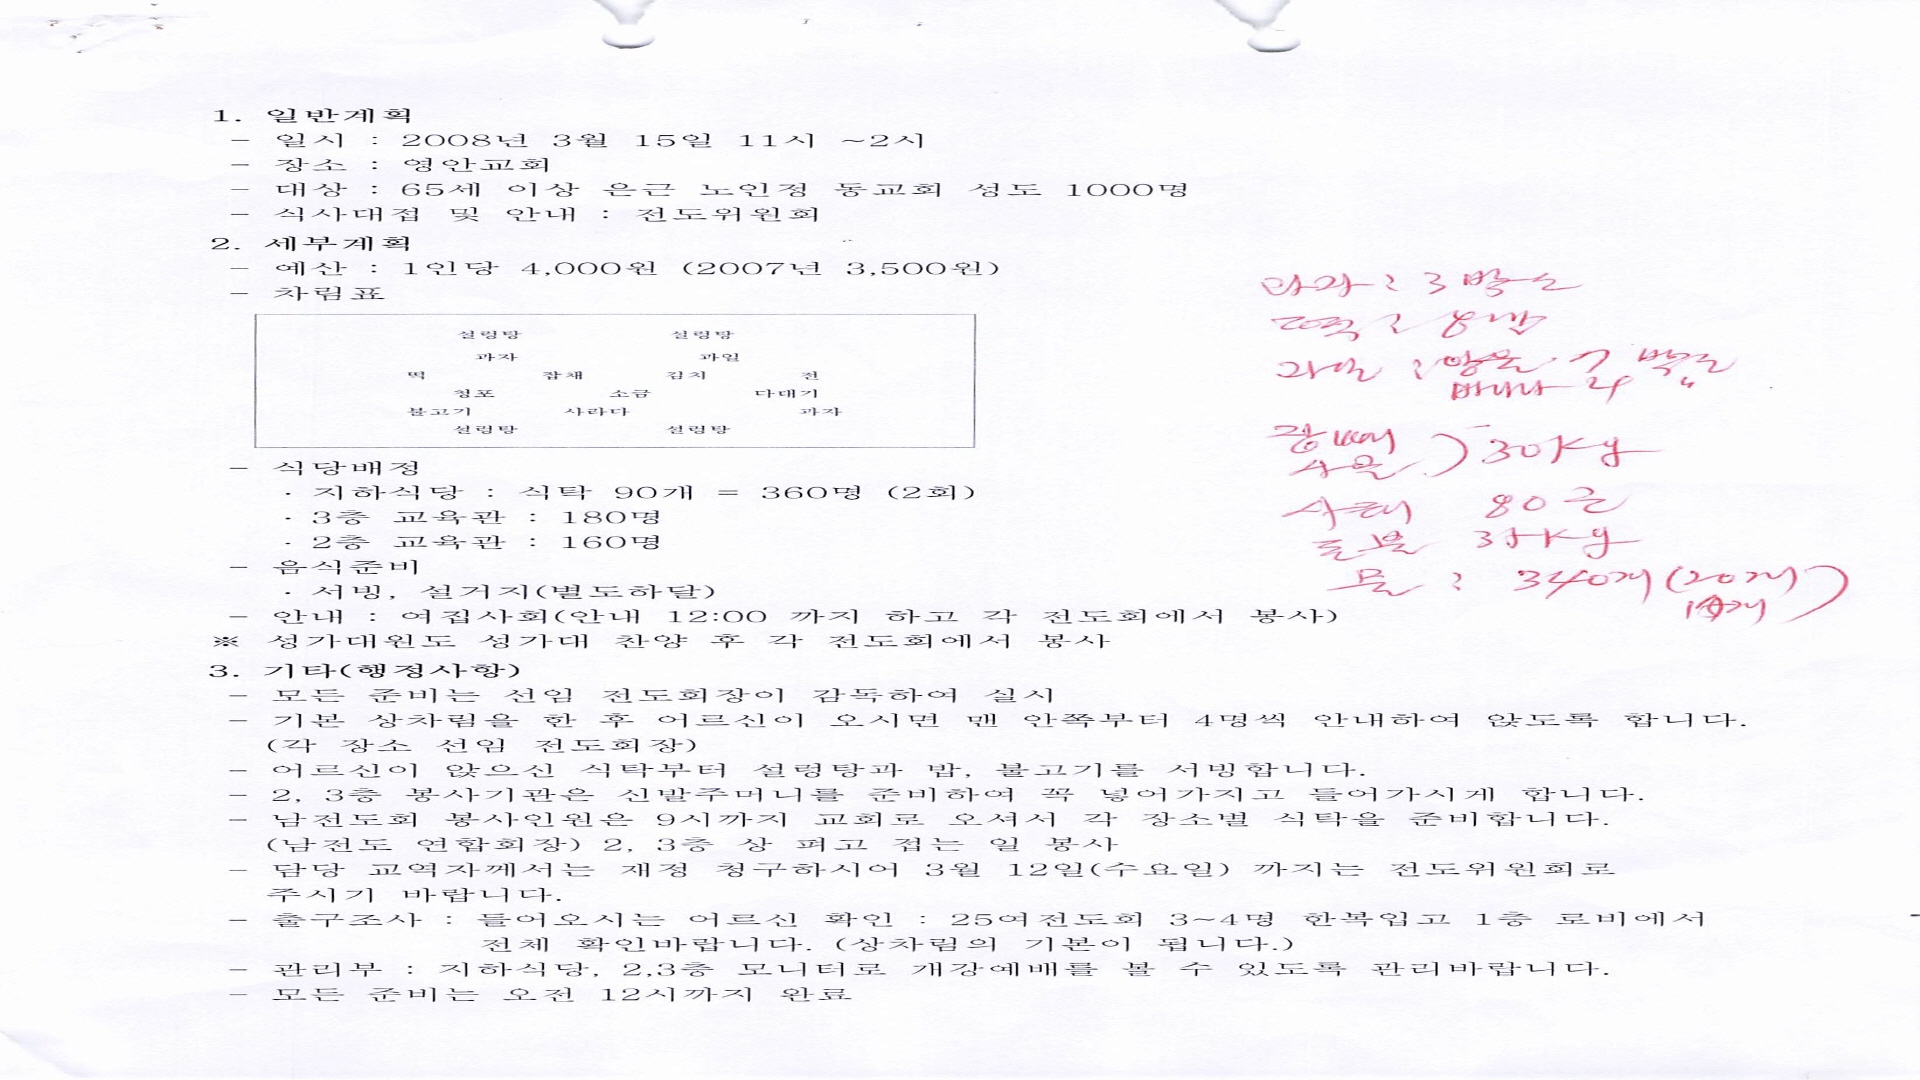 1. 일반계획
- 일시 : 2008년 3월 15일 11시 ~2시
- 장소 : 영안교회
- 대상 : 65세 이상 은근 노인정 동교회 성도 1000명
- 식사대접 및 안내 : 전도위원회
2. 세부계획
- 예산 : 1인당 4,000원 (2007년 3,500원)
- 차림표
설렁탕 설렁탕
과자 과일
떡 잡채 김치 전
청포 소금 다대기
불고기 사라다 과자
설렁탕 설렁탕
- 식당배정
· 지하식당 : 식탁 90개 = 360명 (2회)
· 3층 교육관 : 180명
· 2층 교육관 : 160명
- 음식준비
· 서빙, 설거지(별도하달)
- 안내 : 여집사회(안내 12:00 까지 하고 각 전도회에서 봉사)
※ 성가대원도 성가대 찬양 후 각 전도회에서 봉사
3. 기타(행정사항)
- 모든 준비는 선임 전도회장이 감독하여 실시
- 기본 상차림을 한 후 어르신이 오시면 맨 안쪽부터 4명씩 안내하여 앉도록 합니다.
(각 장소 선임 전도회장)
- 어르신이 앉으신 식탁부터 설렁탕과 밥, 불고기를 서빙합니다.
- 2, 3층 봉사기관은 신발주머니를 준비하여 꼭 넣어가지고 들어가시게 합니다.
- 남전도회 봉사인원은 9시까지 교회로 오셔서 각 장소별 식탁을 준비합니다.
(남전도 연합회장) 2, 3층 상 펴고 접는 일 봉사
- 담당 교역자께서는 재정 청구하시어 3월 12일(수요일) 까지는 전도위원회로
주시기 바랍니다.
- 출구조사 : 들어오시는 어르신 확인 : 25여전도회 3~4명 한복입고 1층 로비에서
전체 확인바랍니다. (상차림의 기본이 됩니다.)
- 관리부 : 지하식당, 2,3층 모니터로 개강예배를 볼 수 있도록 관리바랍니다.
- 모든 준비는 오전 12시까지 완료
: 3 박스
과일 : 박스
바나나 4 "
30Kg
사태 80근
Kg
물 : 340개 (20개)